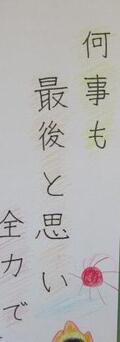 何事も
最後と思い
全力で